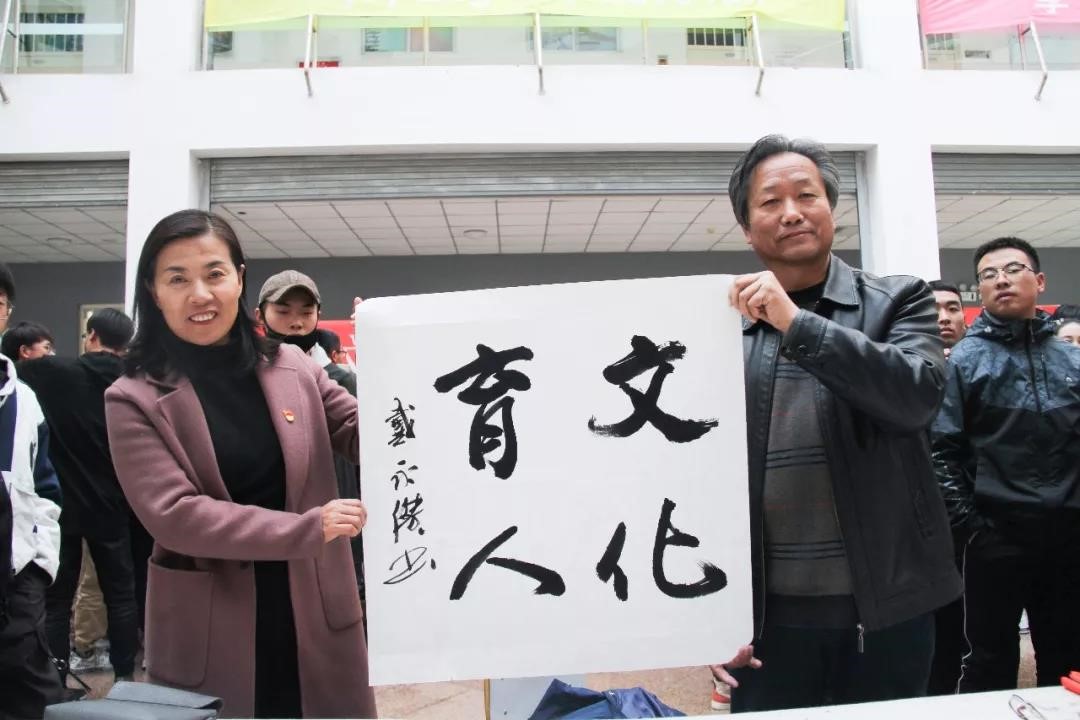 文化
育人
戴永傑书